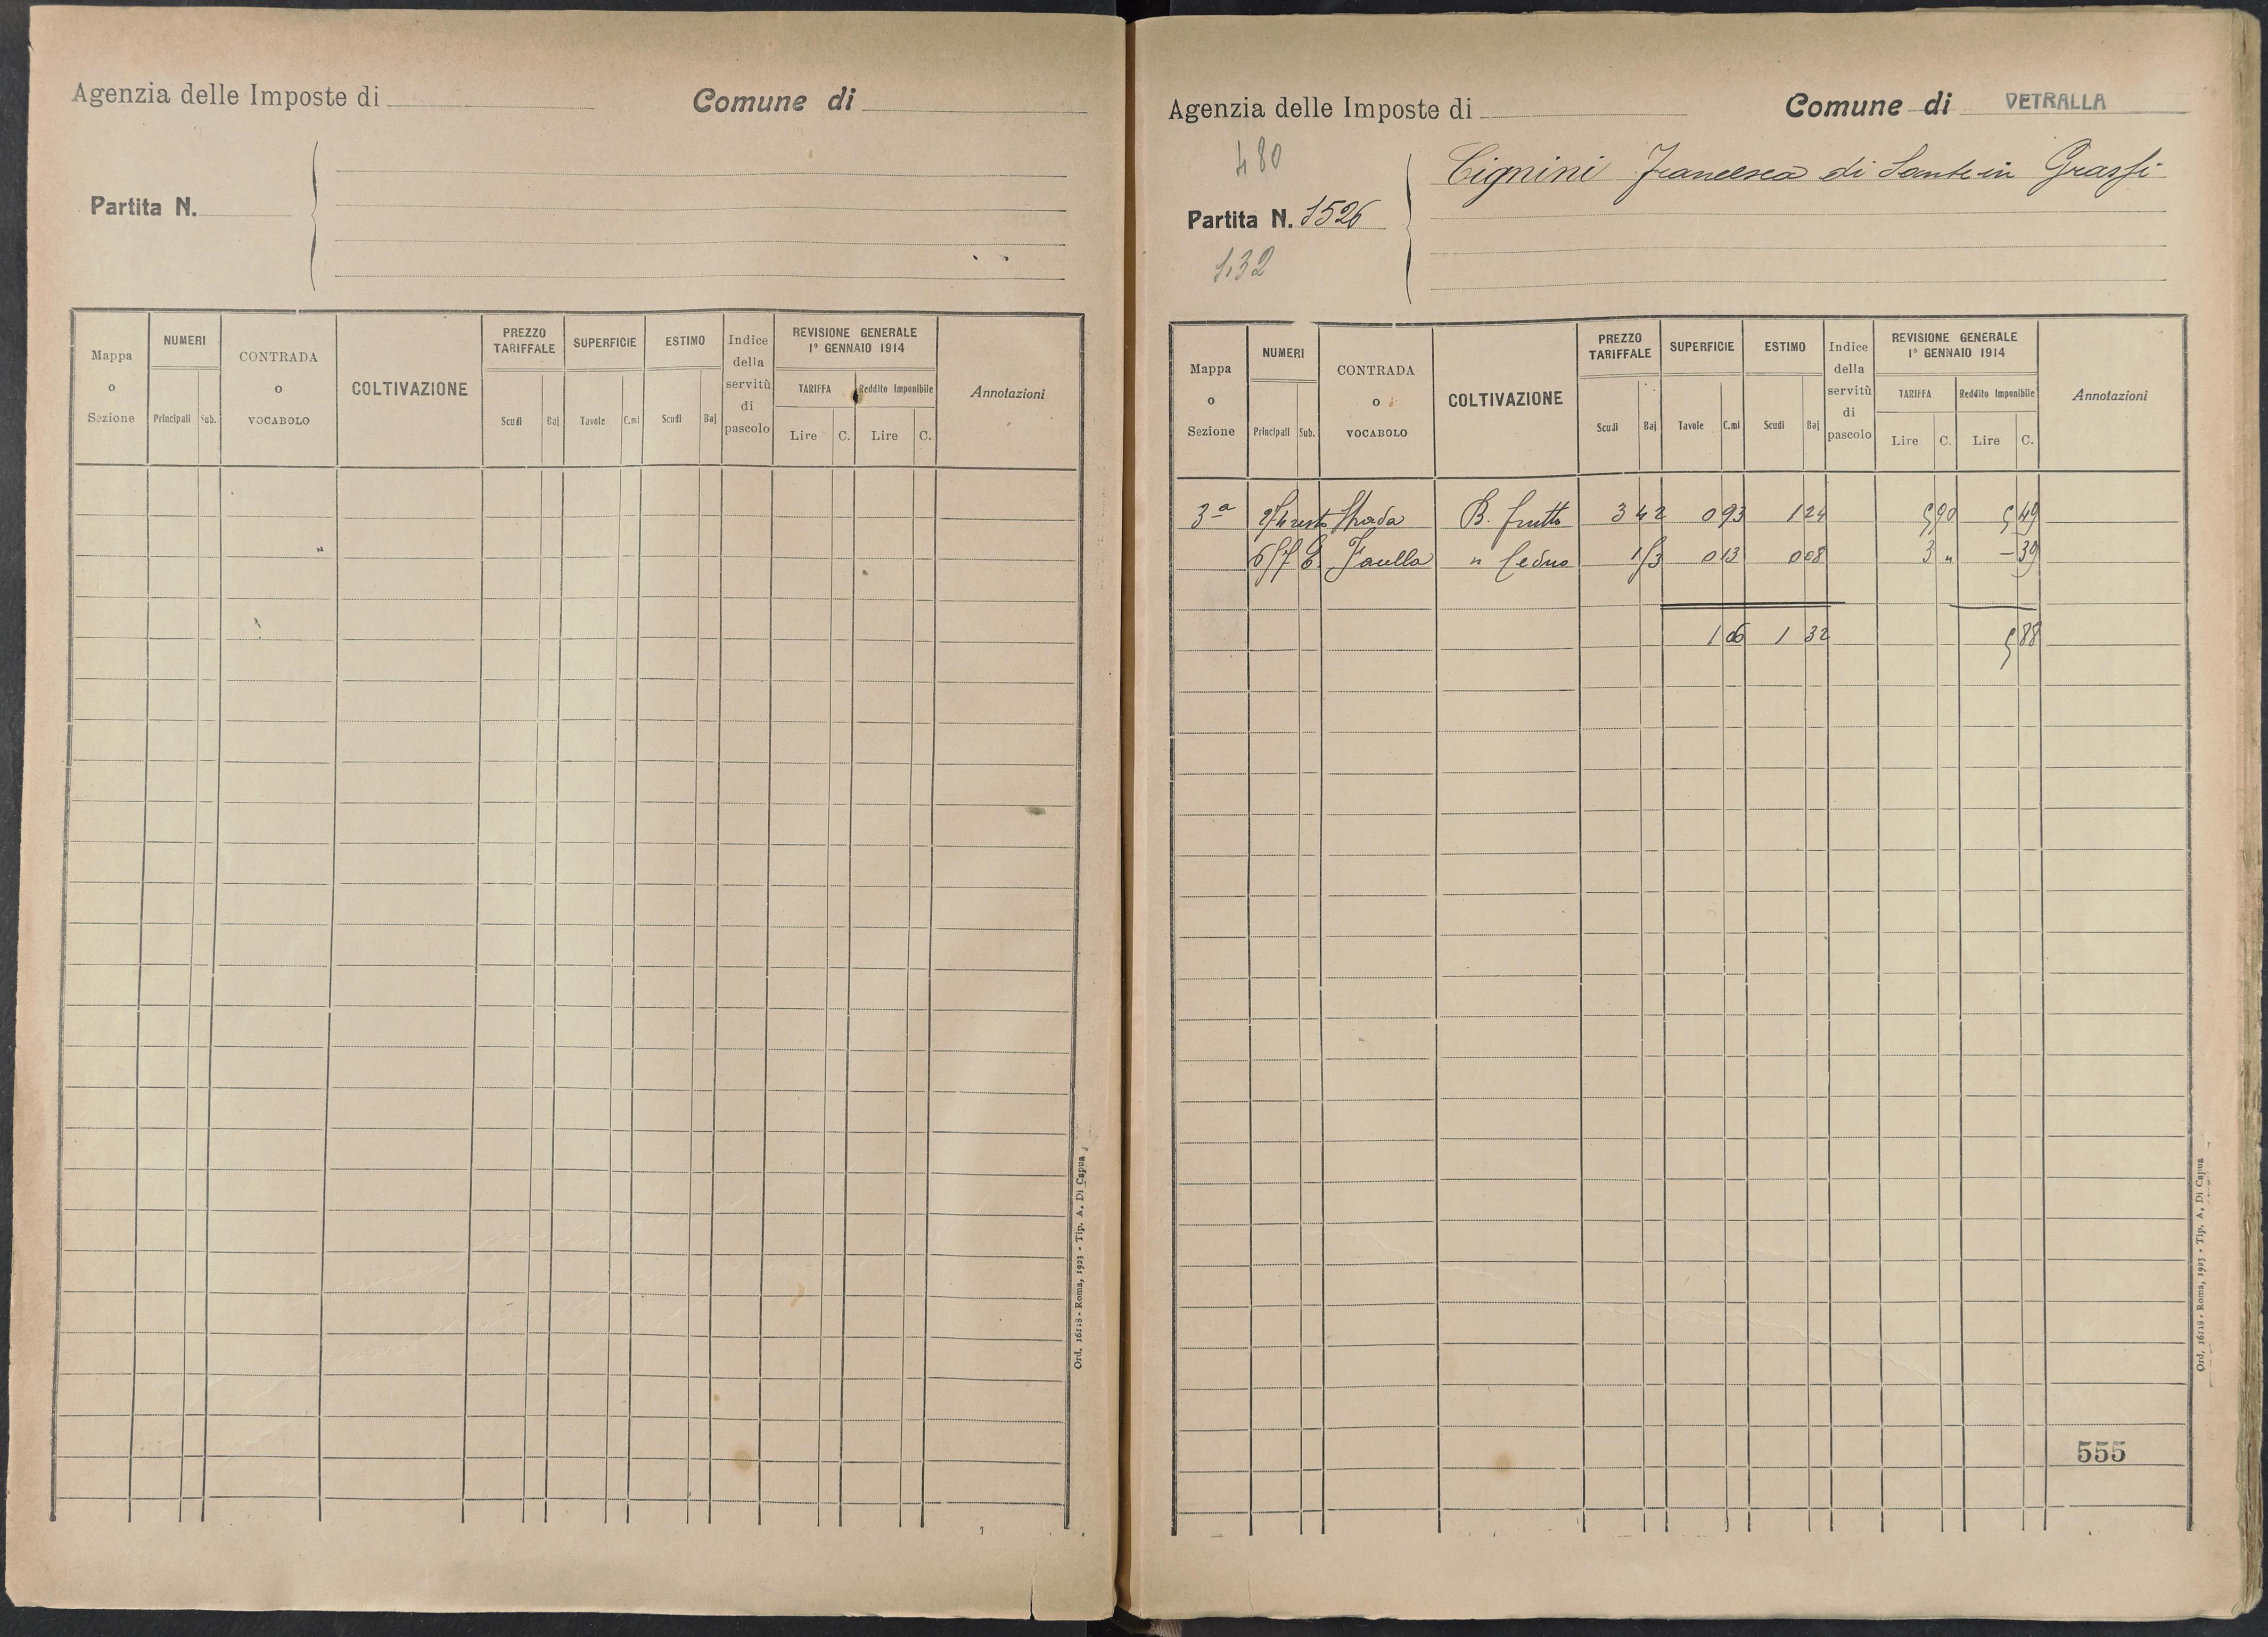 Agenzia delle Imposte di
Comune di
Partita N.
Mappa o Sezione
NUMERI
Principali
Sub.
CONTRADA o VOCABOLO
COLTIVAZIONE
PREZZO TARIFFALE
Scudi
Baj
SUPERFICIE
Tavole
C.mi
ESTIMO
Scudi
Baj
Indice della servitù di pascolo
REVISIONE GENERALE 1° GENNAIO 1914
TARIFFA
Lire C.
Reddito Imponibile
Lire C.
Annotazioni
Ord. 16118 - Roma, 1923 - Tip. A. Di Capua
Agenzia delle Imposte di
Comune di VETRALLA
480
Cignini Francesca di Sante in Grassi
Partita N. 1526
1.32
Mappa o Sezione
NUMERI
Principali
Sub.
CONTRADA o VOCABOLO
COLTIVAZIONE
PREZZO TARIFFALE
Scudi
Baj
SUPERFICIE
Tavole
C.mi
ESTIMO
Scudi
Baj
Indice della servitù di pascolo
REVISIONE GENERALE 1° GENNAIO 1914
TARIFFA
Lire C.
Reddito Imponibile
Lire C.
Annotazioni
3ª Strada B. frutto 3 42 0 93 1 24 5 90 5 49
" Ceduo 0 13 0 08 3 " - 39
1 06 1 32 5 88
555
Ord. 16118 - Roma, 1923 - Tip. A. Di Capua